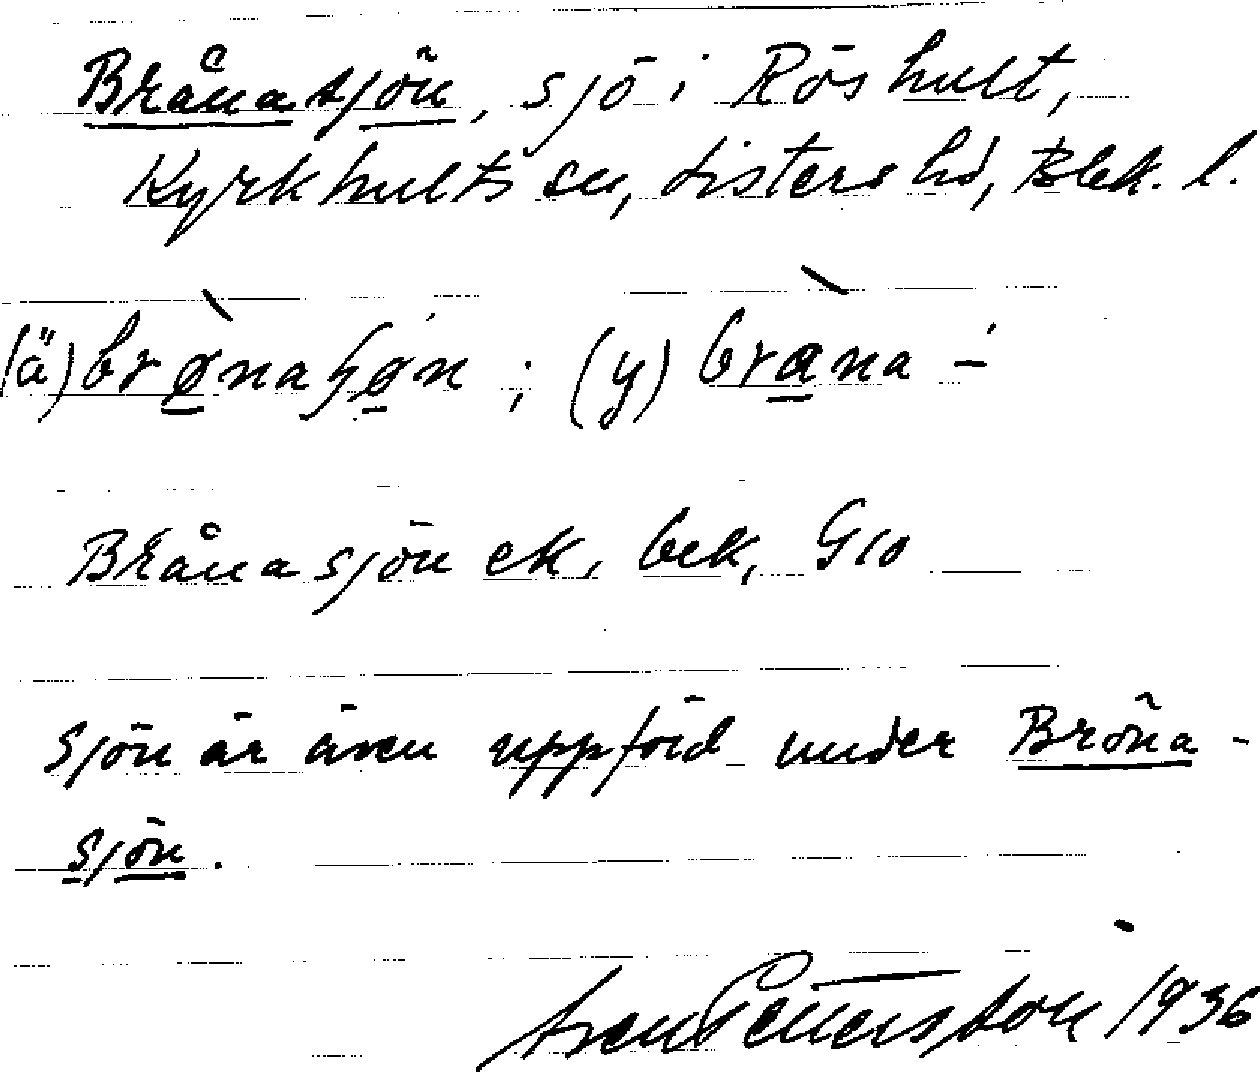 Brånasjön, sjö i Röshult,
Kyrkhults sn, Listers hd, Blek. l.
(ä) brø̀naʃøn ; (y) bràna -
Brånasjön ek. bek, G10
Sjön är även uppförd under Bröna-
sjön.
Sven Pettersson 1936